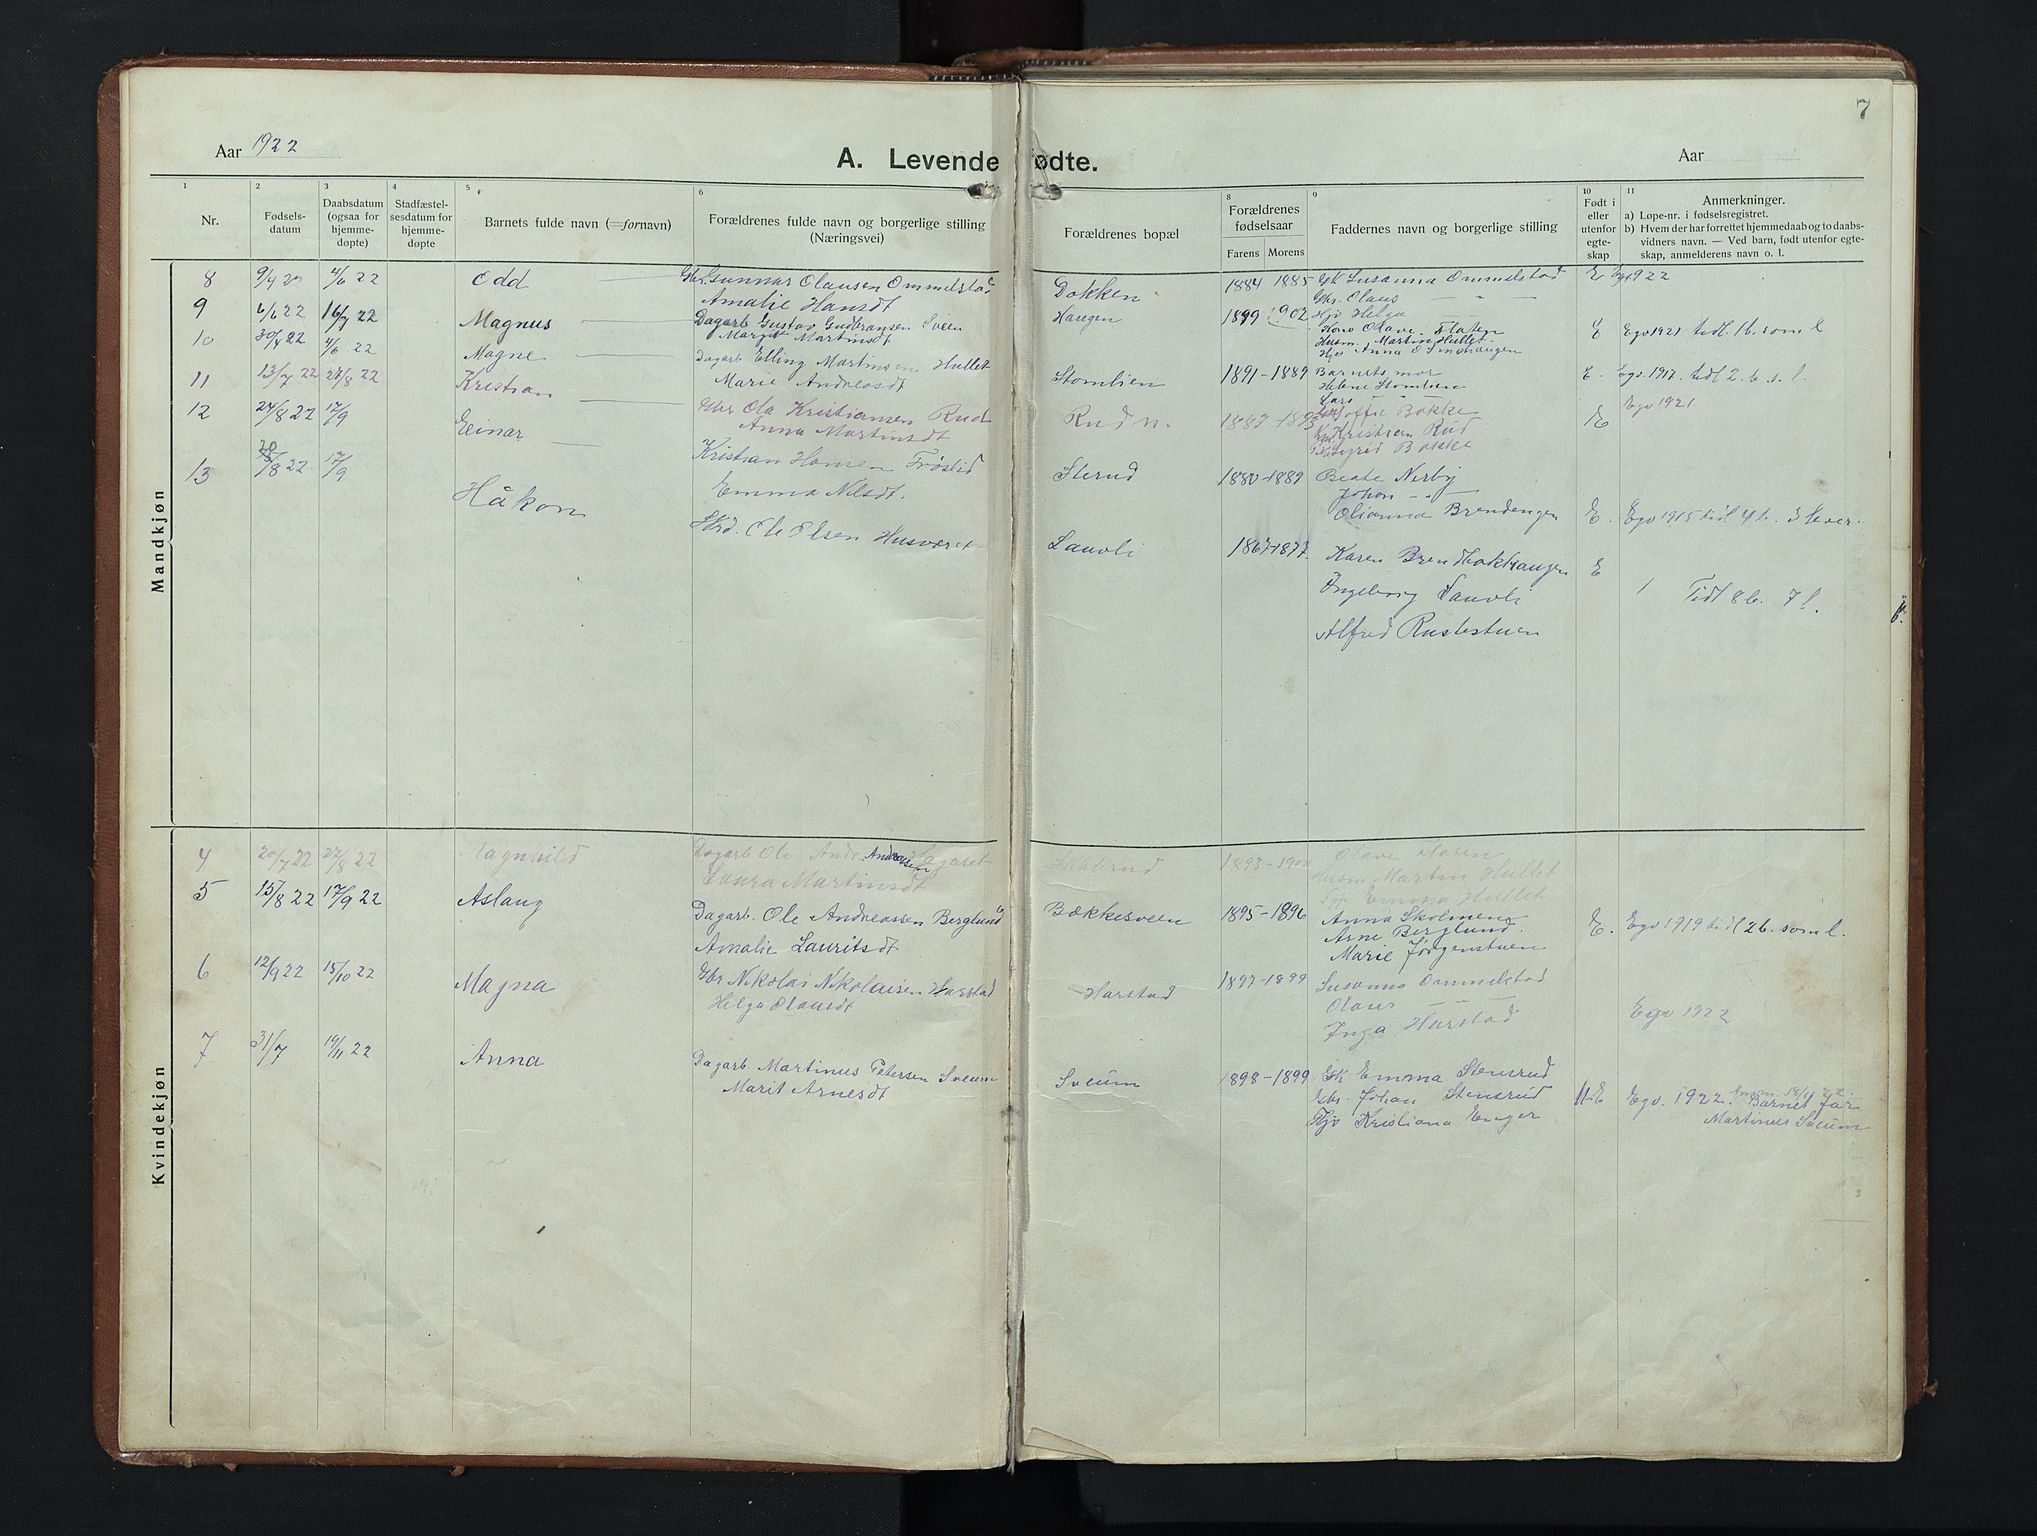 7
Aar 1922
A. Levende fødte.
Aar
1 2 3 4 5 6 8 9 10 11
Nr.
Fødsels-
datum
Daabsdatum
(ogsaa for
hjemme-
døpte)
Stadfæstel-
sesdatum for
hjemme-
døpte
Barnets fulde navn (=fornavn)
Forældrenes fulde navn og borgerlige stilling
(Næringsvei)
Forældrenes bopæl
Forældrenes
fødselsaar
Farens Morens
Faddernes navn og borgerlige stilling
Født i
eller
utenfor
egte-
skap
Anmerkninger.
a) Løpe-nr. i fødselsregistret.
b) Hvem der har forrettet hjemmedaab og to daabs-
vidners navn. — Ved barn, født utenfor egte-
skap, anmelderens navn o. l.
Mandkjøn
8 9/4 22 4/6 22 Odd Gbr. Gunnar Olausen Ommelstad Dokken 1884 1885 Gk Susanna Ommelstad E Egv 1922
Amalie Hansdt Gbr. Olaus — " —
9 6/6 22 16/7 22 Magnus Dagarb Gustav Gudbransen Sveen Haugen 1899 1902 Hjv Helga
Margit Martinsdt Kone Olave Flaten E Egv 1921 tidl. 1 b. som l
Husm. Martin Hullet
Anna
10 30/4 22 4/6 22 Magne Dagarb Elling Martinsen Hullet Stomlien 1891-1889 Barnets mor E. Egv. 1917. tidl 2. b. s. l.
Marie Andreasdt Helene Stomlien
Lars
11 13/7 22 27/8 22 Kristian Gbr Ola Kristiansen Rud Rud n. 1887-1893 Soffie Bakke E Egv 1921
Anna Martinsdt Kristian Rud
Sigrid Bakke
12 24/8 22 17/9 Einar Kristian Hansen Frøslid Sterud 1880-1889 Beate Nerby
Emma Nilsdt. Johan — " —
Olianna Brendengen E. Egv 1915 tidl 4 b. 3 lever.
13 20/8 22 17/9 Håkon Skrd. Ole Olsen Husværet Lauvli 1867-1877 Karen Brendhakhaugen E
Ingeborg Lauvli 1 Tidl 8 b. 7 l.
Alfred Rustestuen
Kvindekjøn
4 20/7 22 27/8 22 Ragnhild Dagarb Ole Andreassen Hagaret 1893-1900 Olave Flaten
Laura Martinsdt Husm Martin Hullet
Emma Hullet
5 15/8 22 17/9 22 Aslaug Dagarb. Ole Andreassen Berglund Bækkesveen 1895-1896 Anna Skolmen E. Egv 1919 tidl 2 b. som l.
Amalie Lauritsdt Arne Berglund.
Marie Jørgenstuen
6 12/9 22 15/10 22 Magna Gbr Nikolai Nikolaisen Harstad Harstad 1897-1899 Susanna Ommelstad
Helga Olausdt Olaus — " —
Inga Harstad Egv 1922
7 31/7 19/11 22 Anna Dagarb Martinus Petersen Sveum Sveum 1898-1899 Gk Emma Stensrud
Marit Arnesdt Gbr. Johan Stensrud U-E Egv. 1922. Barnets far
Hjv Kristiana Enger Martinus Sveum